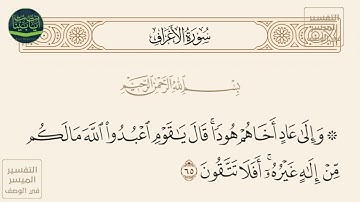 سُورَةُ الأَعْرَافِ
بِسْمِ اللَّهِ الرَّحْمَٰنِ الرَّحِيمِ
۞ وَإِلَىٰ عَادٍ أَخَاهُمْ هُودًا ۗ قَالَ يَا قَوْمِ اعْبُدُوا اللَّهَ مَا لَكُم
مِّنْ إِلَٰهٍ غَيْرُهُ ۚ أَفَلَا تَتَّقُونَ ٦٥
التفسير
الميسر
في الوصف